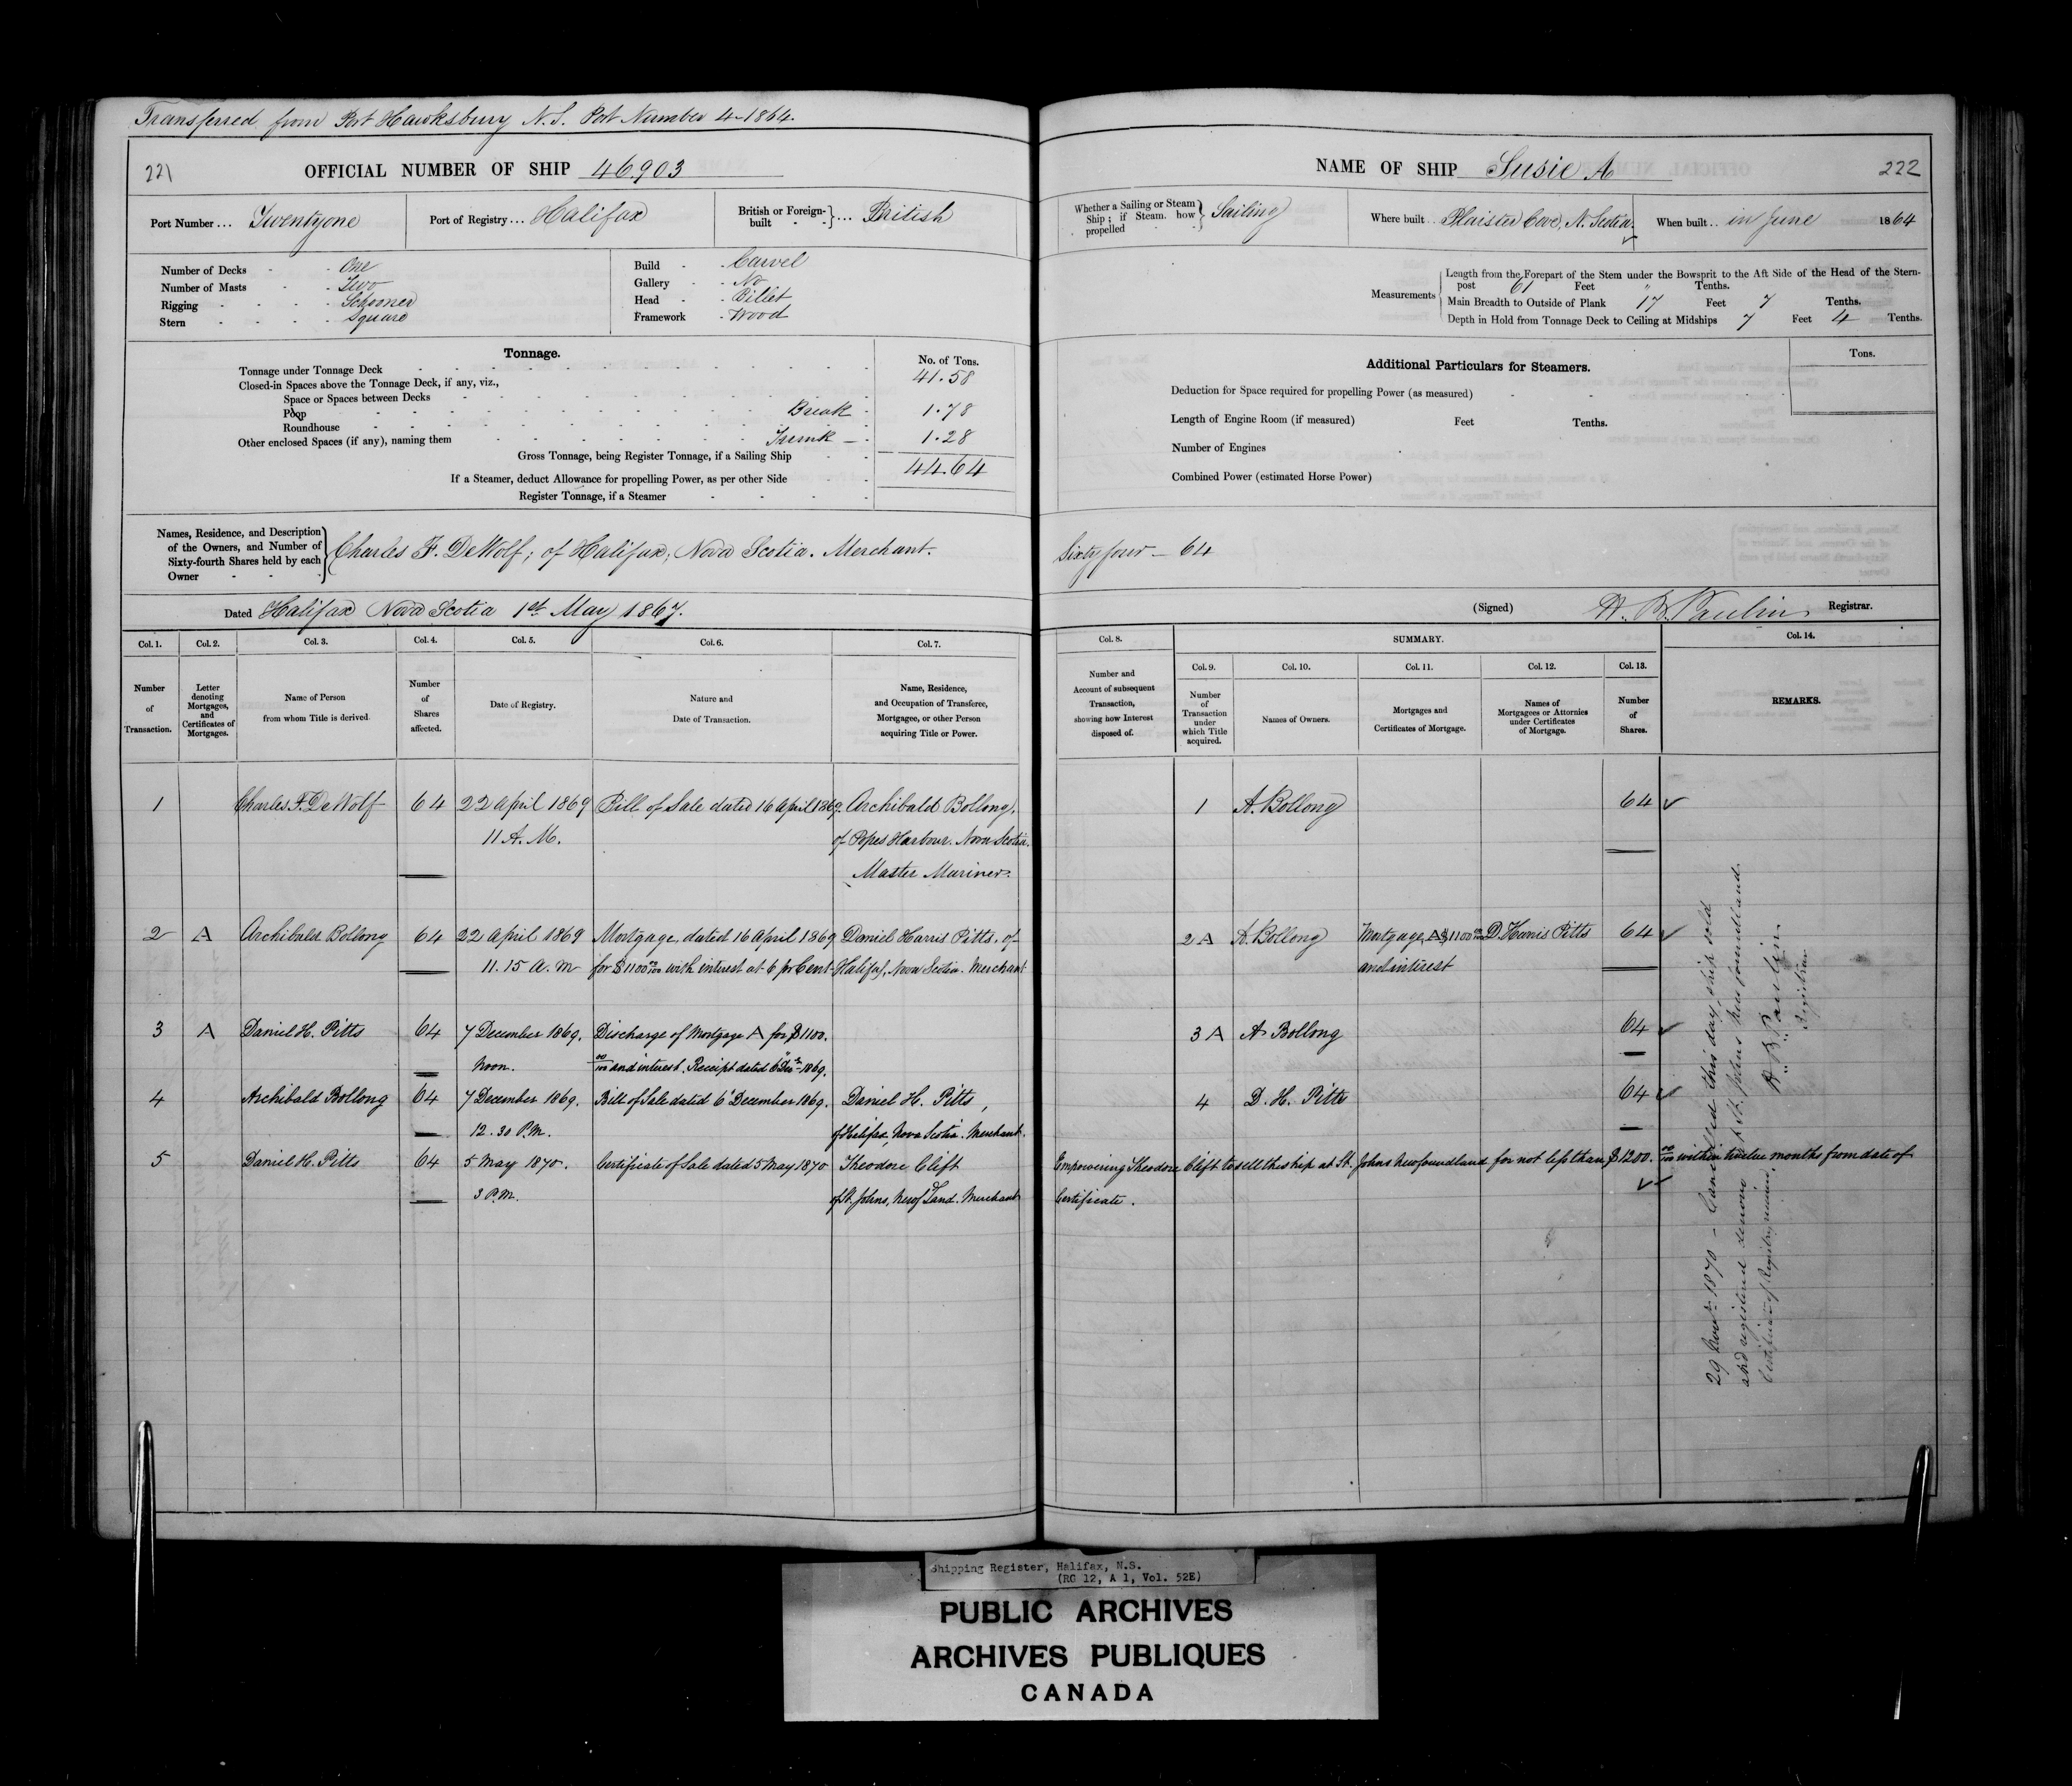 Transferred from Port Hawksbury N.S. Port Number 4-1864.
221
OFFICIAL NUMBER OF SHIP 46.903
Port Number ... Twentyone
Port of Registry ... Halifax
British or Foreign-built } ... British
Number of Decks - One
Number of Masts - Two
Rigging - Schooner
Stern - Square
Build - Carvel
Gallery - No
Head - Billet
Framework - Wood
Tonnage.
No. of Tons.
Tonnage under Tonnage Deck 41.58
Closed-in Spaces above the Tonnage Deck, if any, viz.,
Space or Spaces between Decks
Poop Break 1.78
Roundhouse
Other enclosed Spaces (if any), naming them Trunk 1.28
Gross Tonnage, being Register Tonnage, if a Sailing Ship 44.64
If a Steamer, deduct Allowance for propelling Power, as per other Side
Register Tonnage, if a Steamer
Names, Residence, and Description of the Owners, and Number of Sixty-fourth Shares held by each Owner
Charles F. DeWolf; of Halifax, Nova Scotia. Merchant.
Dated Halifax Nova Scotia 1st May 1867.
Col. 1. Col. 2. Col. 3. Col. 4. Col. 5. Col. 6. Col. 7.
Number of Transaction.
Letter denoting Mortgages, and Certificates of Mortgages.
Name of Person from whom Title is derived.
Number of Shares affected.
Date of Registry.
Nature and Date of Transaction.
Name, Residence, and Occupation of Transferee, Mortgagee, or other Person acquiring Title or Power.
1 Charles F. DeWolf 64 22 April 1869 Bill of Sale dated 16 April 1869. Archibald Bollong,
11 A.M. of Popes Harbour. Nova Scotia.
Master Mariner.
2 A Archibald Bollong 64 22 April 1869 Mortgage, dated 16 April 1869 Daniel Harris Pitts, of
11.15 A.M for $1100 00/100 with interest at 6 pr Cent Halifax, Nova Scotia. Merchant
3 A Daniel H. Pitts 64 7 December 1869. Discharge of Mortgage A for $1100.
Noon. 00/100 and interest. Receipt dated 6 Decr 1869.
4 Archibald Bollong 64 7 December 1869. Bill of Sale dated 6 December 1869. Daniel H. Pitts,
12.30 P.M. of Halifax, Nova Scotia. Merchant.
5 Daniel H. Pitts 64 5 May 1870. Certificate of Sale dated 5 May 1870 Theodore Clift
3 P.M. of St. Johns, Newfdland. Merchant
NAME OF SHIP Susie A
222
Whether a Sailing or Steam Ship; if Steam, how propelled } Sailing
Where built Plaister Cove, N. Scotia.
When built .. in June 1864
Measurements
Length from the Forepart of the Stem under the Bowsprit to the Aft Side of the Head of the Stern-
post 61 Feet " Tenths.
Main Breadth to Outside of Plank 17 Feet 7 Tenths.
Depth in Hold from Tonnage Deck to Ceiling at Midships 7 Feet 4 Tenths.
Additional Particulars for Steamers.
Tons.
Deduction for Space required for propelling Power (as measured)
Length of Engine Room (if measured) Feet Tenths.
Number of Engines
Combined Power (estimated Horse Power)
Sixty four - 64
(Signed) H. B. Paulin Registrar.
Col. 8. SUMMARY. Col. 14.
Col. 9. Col. 10. Col. 11. Col. 12. Col. 13.
Number and Account of subsequent Transaction, showing how Interest disposed of.
Number of Transaction under which Title acquired.
Names of Owners.
Mortgages and Certificates of Mortgage.
Names of Mortgagees or Attornies under Certificates of Mortgage.
Number of Shares.
REMARKS.
1 A. Bollong 64
2 A A. Bollong Mortgage, A $1100 00/100 D. Harris Pitts 64
and interest
3 A A. Bollong 64
4 D. H. Pitts 64
Empowering Theodore Clift to sell the ship at St. Johns Newfoundland for not less than $1200. 00/100 within twelve months from date of
Certificate.
29 Novr 1870 - Cancelled this day, ship sold
and registered denovo at St. Johns Newfoundland.
Certificate of Registry
H. B. Paulin
Registrar
Shipping Register, Halifax, N.S.
(RG 12, A 1, Vol. 52E)
PUBLIC ARCHIVES
ARCHIVES PUBLIQUES
CANADA